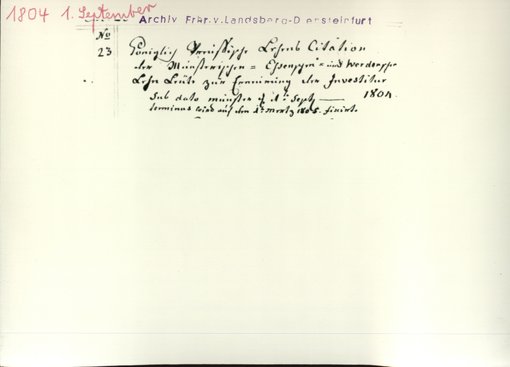 1804 1. September
Archiv Frhr.v.Landsberg-D ersteinfurt
No
23
Königlich Preussische Lehns Citation
der Münsterischen = und Werdensche
Lehn Leute zur Erneuerung der Investitur
Sub dato münster d 1t Septr 1804.
terminus wird auf den 2t Mertz 1805. fixirt.